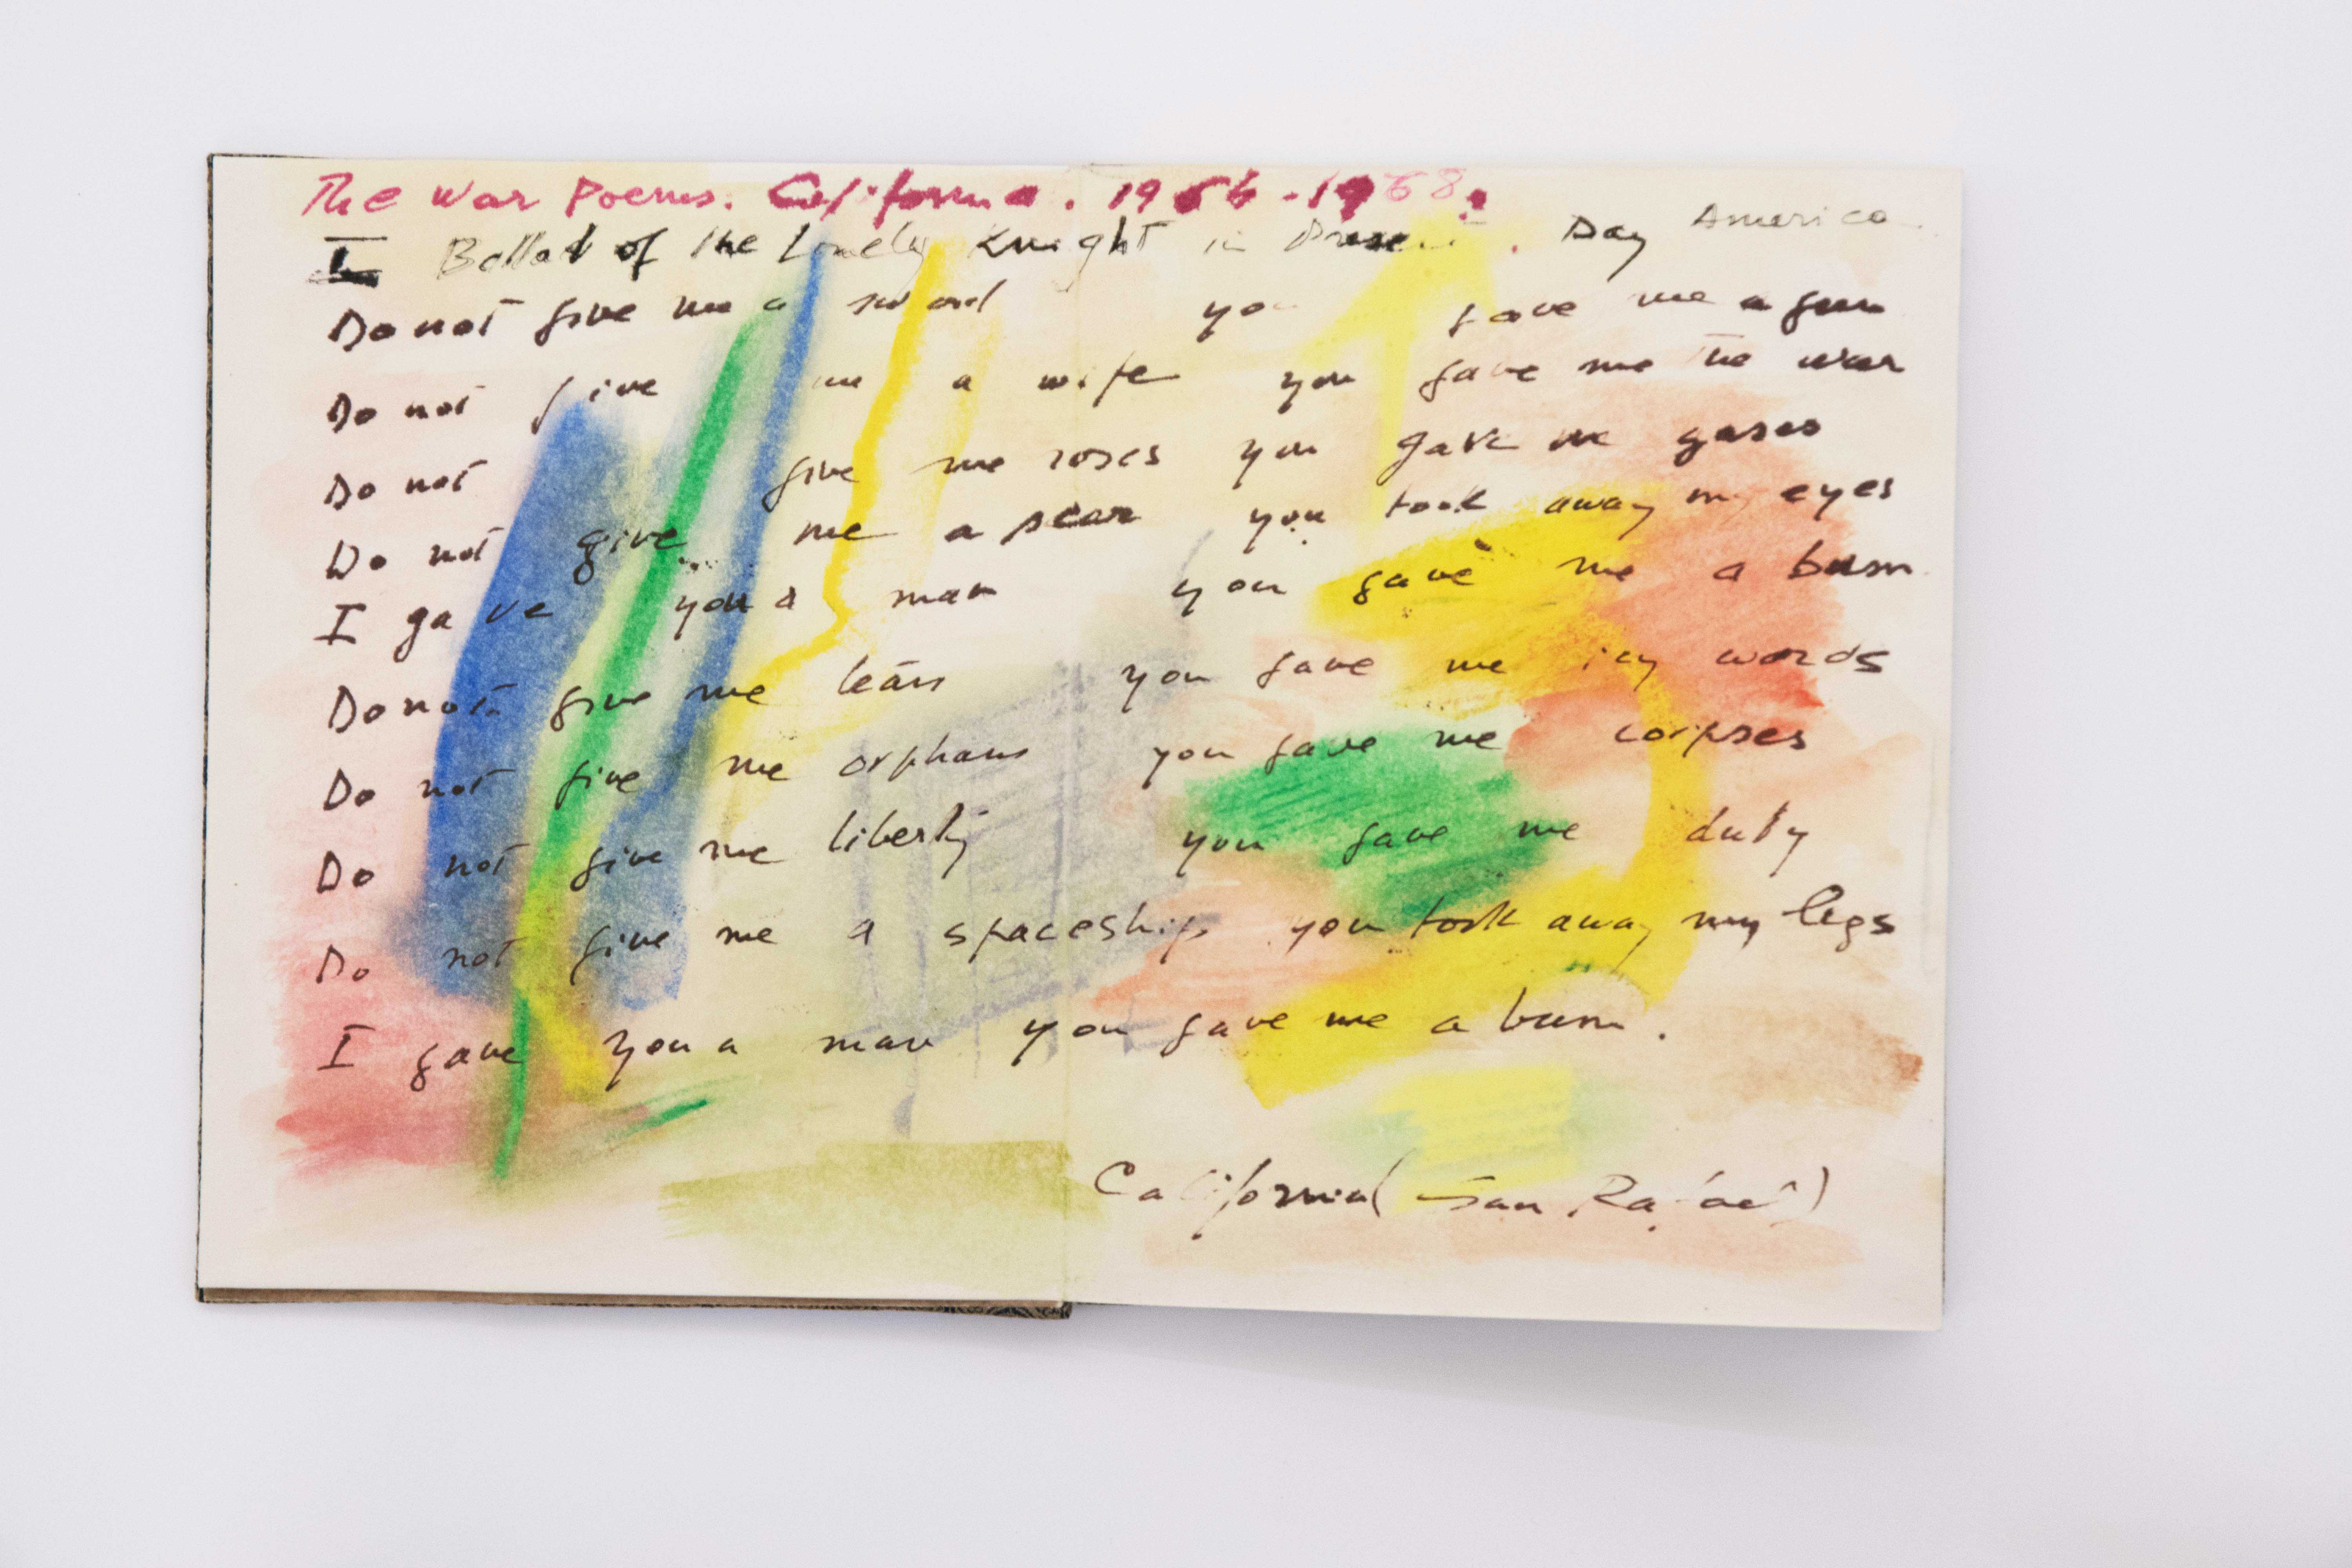 The War Poems. California. 1966-1968.
I Ballad of the Lonely Knight in Present. Day America
Do not give me a sword you gave me a gun
Do not give me a wife you gave me the war
Do not give me roses you gave me gases
Do not give me a scar you took away my eyes
I gave you a man you gave me a bum
Do not give me tears you gave me icy words
Do not give me orphans you gave me corpses
Do not give me liberty you gave me duty
Do not give me a spaceship you took away my legs
I gave you a man you gave me a bum.
California (San Rafael)